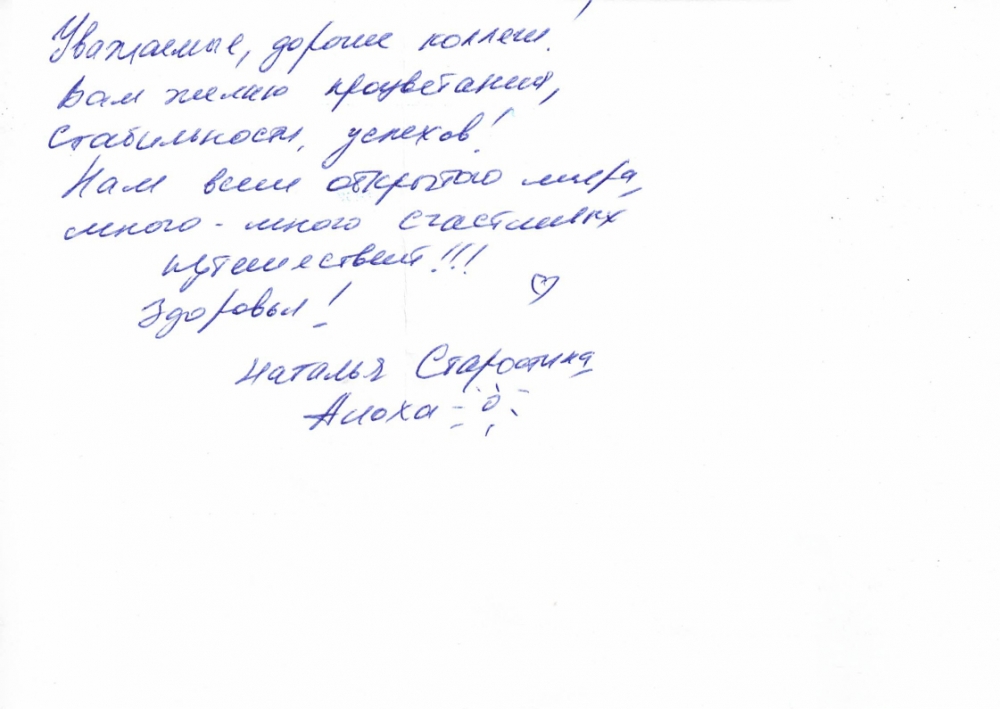 Уважаемые, дорогие коллеги!
Вам желаю процветания,
стабильности, успехов!
Нам всем открытого мира,
много-много счастливых
путешествий!!!
Здоровья!
Наталья Старостина
Алоха